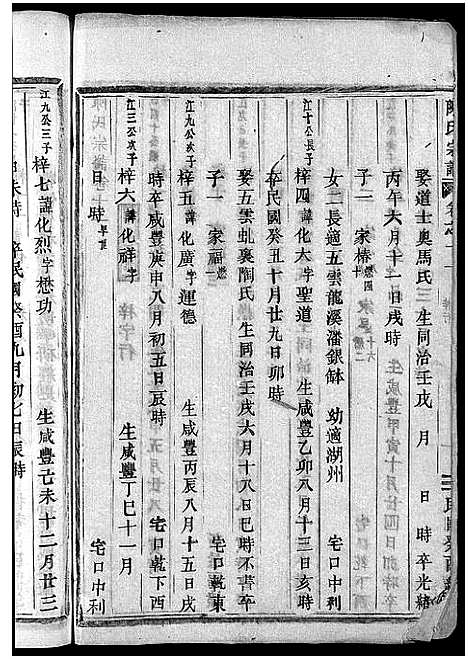 陳氏宗譜
娶道士奧馬氏三 生同治壬戌 月 日 時卒光緒
丙午六月十一日戌時
子二 家椿 繼四
女二長適五雲龍溪潘銀缽 幼適湖州 宅口中利
江十公長子 梓四諱化大字聖道 生咸豐乙卯八月十三日亥時
卒民國癸丑十月廿九日卯時
娶五雲虬襄陶氏 生同治壬戌六月十八日巳時不書卒
子一 家福 宅口乾東
江九公次子 梓五諱化廣字運德 生咸豐丙辰八月十五日戌
時卒咸豐庚申八月初五日辰時 宅口乾下酉
江三公次子 梓六諱化祥字 生咸豐丁巳十一月
日 時 宅口中利
江九公三子 梓七諱化烈字懋功 生咸豐己未十二月廿三
日未時 卒民國癸酉九月初七日辰時